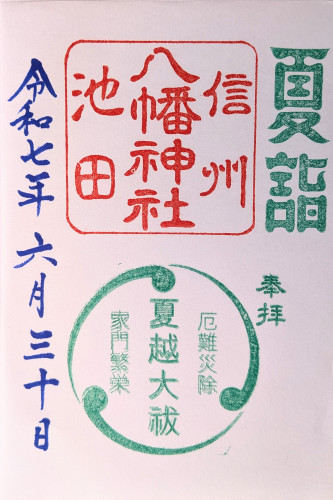 夏詣
奉拝
信州
八幡神社
池田
厄難災除
夏越大祓
家門繁栄
令和七年六月三十日